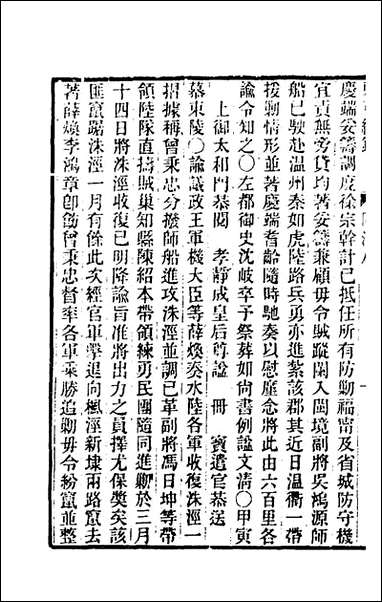 慶端妥籌調度徐宗幹計已抵任所有防勦福甯及省城防守機
宜責無旁貸均著妥籌兼顧毋令賊蹤闌入閩境副將吳鴻源師
船已駛赴温州秦如虎陸路兵勇亦進紮該郡其近日温衢一帶
援勦情形並著慶端耆齡隨時馳奏以慰廑念將此由六百里各
諭令知之○左都御史沈岐卒予祭葬如尚書例諡文清○甲寅
上御太和門恭閱 孝靜成皇后尊諡 冊 寶遣官恭送
慕東陵○諭議政王軍機大臣等薛煥奏水陸各軍收復洙涇一
摺據稱曾秉忠分撥師船進攻洙涇並調已革副將馮日坤等帶
領陸隊直擣賊巢知縣陳紹本帶領練勇民團隨同進勦於三月
十四日將洙涇收復已明降諭旨准將出力之員擇尤保奬矣該
匪竄踞洙涇一月有餘此次經官軍擊退向楓涇新埭兩路竄去
著薛煥李鴻章卽飭曾秉忠督率各軍乘勝追勦毋令紛竄並整